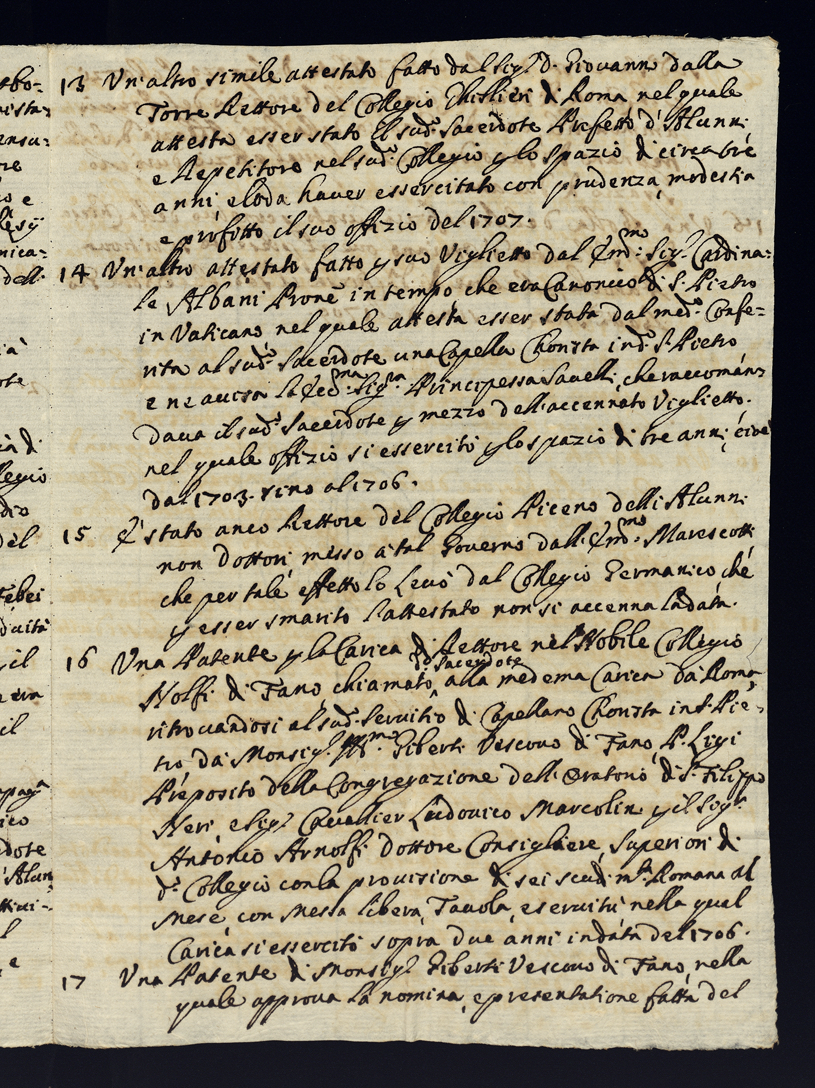 13 Un'altro simile attestato fatto dal Sig.r D. Giovanni dalla
Torre Rettore del Collegio Ghislieri di Roma nel quale
attesta esser stato il sud.o Sacerdote Prefetto d'Alunni
e Repetitore nel sud.o Collegio p lo spazio di circa tre
anni, e loda haver essercitato con prudenza, modestia
e profitto il suo offizio del 1707.
14 Un'altro attestato fatto p suo Viglietto dal Em.mo Sig.r Cardina:
le Albani Prone in tempo che era Canonico di S. Pietro
in Vaticano nel quale attesta esser stata dal med.o Confe=
rita al sud.o Sacerdote una Capella Chorista in d.o S. Pietro
e ne avisa la Ecc.ma Sig.ra Principessa Savelli, che raccoman=
dava il sud.o Sacerdote p mezzo dell'accennato Viglietto.
nel quale offizio si essercitò p lo spazio di tre anni, cioè
dal 1703. sino al 1706.
15 E' stato anco Rettore del Collegio Piceno delli Alunni
non Dottori, messo a tal Governo dall'Em.mo Marescotti
che per tale effetto lo levò dal Collegio Germanico, che
p esser smarito l'attestato non si accenna la data.
16 Una Patente p la Carica di Rettore nel Nobile Collegio
d.o Sacerdote
Nolfi di Fano chiamato, alla medema Carica da Roma
ritrovandosi al sud.o Servitio di Capellano Chorista in S. Pie=
tro da Monsig.r Ill.mo Giberti Vescovo di Fano, P. Ligi
Preposito della Congregazione dell'Oratorio di S. Filippo
Neri, e Sig.r Chevallier Ludovico Marcolini p il Sig.r
Antonio Arnolfi Dottore Consigliere, Superiori di
d.o Collegio con la provisione di sei scudi m.ta Romana al
Mese, con Messa libera, Tavola, e servitù nella qual
Carica si essercitò sopra due anni in data del 1706.
17 Una Patente di Monsig.r Giberti Vescovo di Fano, nella
quale approva la nomina, e presentatione fatta del